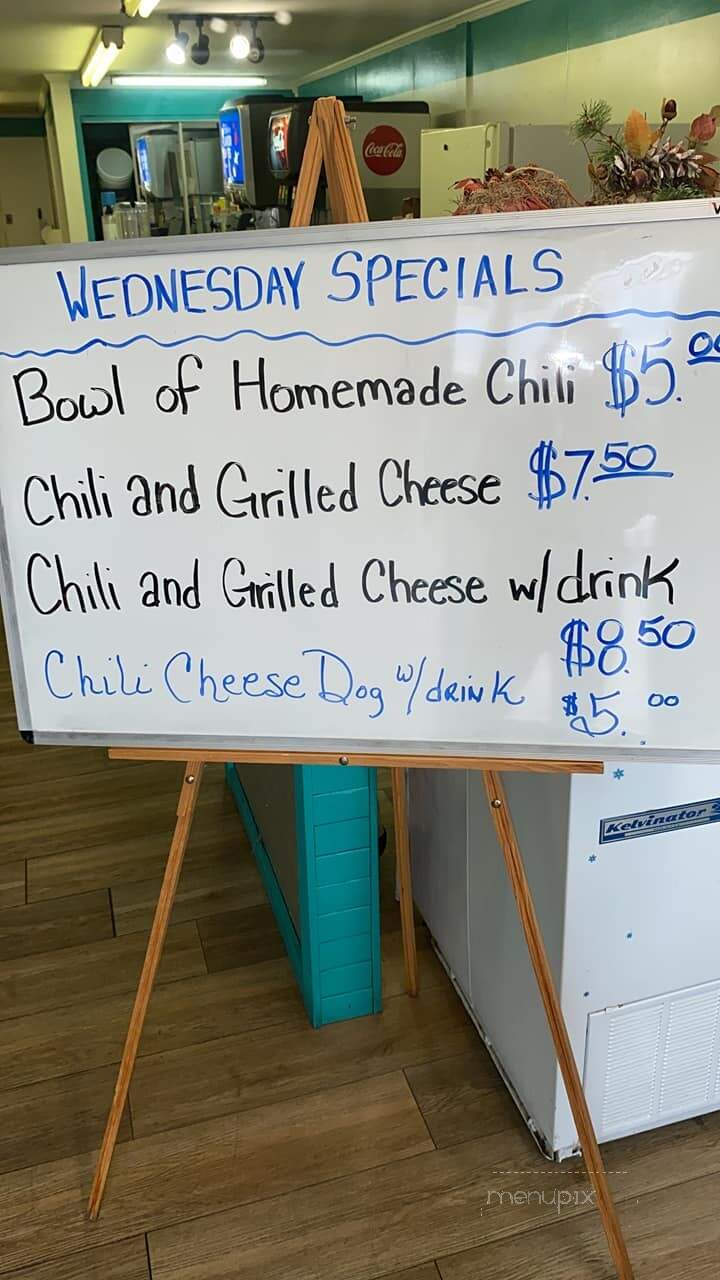 Coca-Cola
WEDNESDAY SPECIALS
Bowl of Homemade Chili $5.00
Chili and Grilled Cheese $7.50
Chili and Grilled Cheese w/drink
$8.50
Chili Cheese Dog w/drink $5.00
Kelvinator
menupix